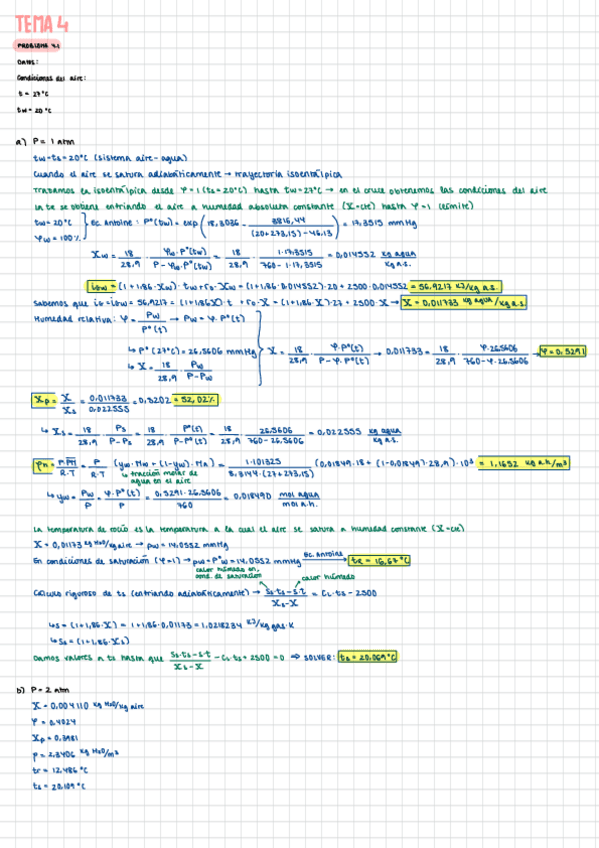 TEMA 4
PROBLEMA 4.1
DATOS:
Condiciones del aire:
t = 27°C
tw = 20°C
a) P = 1 atm
tw=ts=20°C (sistema aire-agua)
Cuando el aire se satura adiabáticamente → trayectoria isoentálpica
Trazamos en isoentálpica desde φ=1 (ts=20°C) hasta tw=27°C → en el cruce obtenemos las condiciones del aire
La tr se obtiene enfriando el aire a humedad absoluta constante (X=cte) hasta φ=1 (límite)
tw=20°C
φw=100%
Ec. Antoine: P°(tw) = exp(18,3036 - 3816,44 / (20+273,15)-46,13) = 17,3515 mmHg
Xw = 18/28,9 · φw·P°(tw) / P-φw·P°(tw) = 18/28,9 · 1·17,3515 / 760-1·17,3515 = 0,014552 kg agua/kg a.s.
iGw = (1+1,86·Xw)·tw+r0·Xw = (1+1,86·0,014552)·20+2500·0,014552 = 56,9217 kJ/kg a.s.
Sabemos que iG=iGw = 56,9217 = (1+1,86X)·t +r0·X = (1+1,86·X)·27+2500·X → X = 0,011733 kg agua/kg a.s.
Humedad relativa: φ = Pw/P°(t) → Pw = φ·P°(t)
↳ P°(27°C) = 26,5606 mmHg
↳ X = 18/28,9 · Pw/P-Pw
X = 18/28,9 · φ·P°(t) / P-φ·P°(t) → 0,011733 = 18/28,9 · φ·26,5606 / 760-φ·26,5606 → φ = 0,5291
Xp = X/Xs = 0,011733/0,022555 = 0,5202 = 52,02%
↳ Xs = 18/28,9 · Ps/P-Ps = 18/28,9 · P°(t)/P-P°(t) = 18/28,9 · 26,5606/760-26,5606 = 0,022555 kg agua/kg a.s.
R·T = P/R·T (yw·Mw + (1-yw)·MA) = 1·101325 / 8,3144·(27+273,15) (0,01849·18 + (1-0,01849)·28,9)·10³ = 1,1652 kg a.h/m³
↳ fracción molar de agua en el aire
↳ yw = Pw/P = φ·P°(t)/P = 0,5291·26,5606/760 = 0,018490 mol agua/mol a.h.
La temperatura de rocío es la temperatura a la cual el aire se satura a humedad constante (X=cte)
X = 0,01173 kg H2O/kg aire → pw = 14,0552 mmHg
En condiciones de saturación (φ=1) → pw=P°w = 14,0552 mmHg Ec. Antoine → tR = 16,67°C
calor húmedo en cond. de saturación
calor húmedo
Cálculo riguroso de ts (enfriando adiabáticamente) → Ss·ts-s·t / Xs-X = CL·ts - 2500
↳ s = (1+1,86·X) = 1+1,86·0,01173 = 1,0218234 kJ/kg gas·K
↳ Ss = (1+1,86·Xs)
Damos valores a ts hasta que Ss·ts-s·t / Xs-X - CL·ts + 2500 = 0 ⇒ SOLVER: ts = 20,069°C
b) P = 2 atm
X = 0,004110 kg H2O/kg aire
φ = 0,4024
Xp = 0,3981
ρ = 2,3406 kg H2O/m³
tr = 12,486°C
ts = 20,109°C